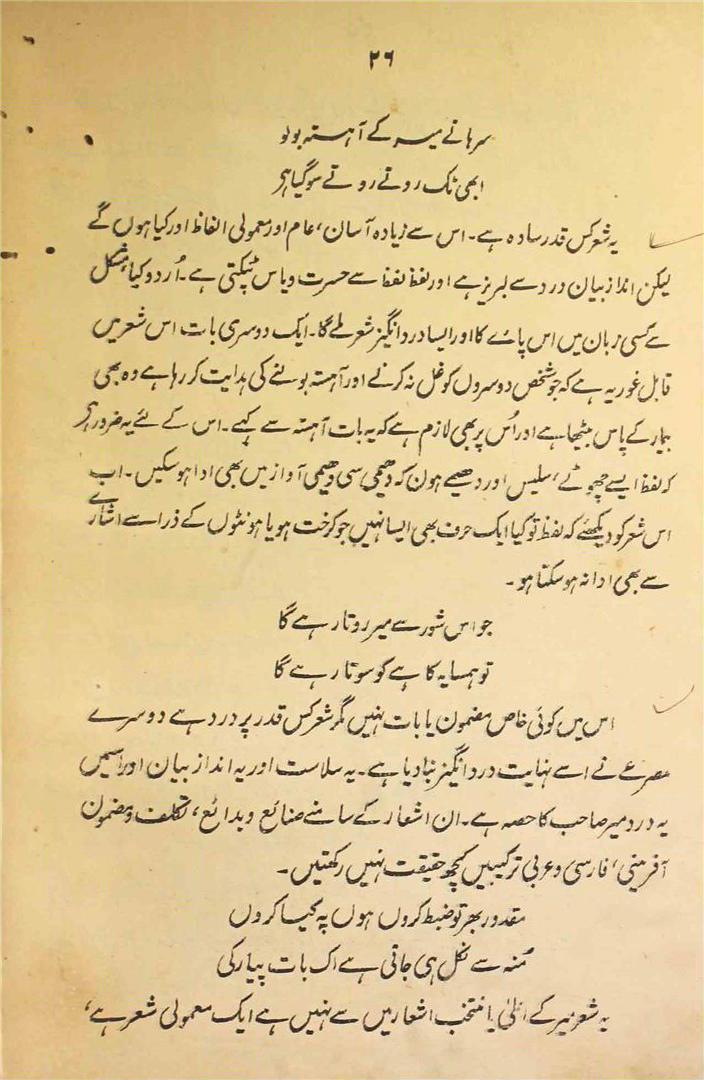 ۲۶
سرہانے میر کے آہستہ بولو
ابھی ٹک روتے روتے سوگیا ہر
یہ شعر کس قدر سادہ ہے۔ اس سے زیادہ آسان، عام اور معمولی الفاظ اور کیا ہوں گے
لیکن انداز بیان درد سے لبریز ہے اور لفظ لفظ سے حسرت و یاس ٹپکتی ہے۔ اُردو کیا مشکل
سے کسی زبان میں اس پائے کا اور ایسا درد انگیز شعر ملے گا۔ ایک دوسری بات اس شعر میں
قابل غور یہ ہے کہ جو شخص دوسروں کو غل نہ کرنے اور آہستہ بولنے کی ہدایت کر رہا ہے وہ بھی
بیمار کے پاس بیٹھا ہے اور اُس پر بھی لازم ہے کہ یہ بات آہستہ سے کہے۔ اس کے لئے یہ ضرور ہر
کہ لفظ ایسے چھوٹے، سلیس اور دھیمے ہون کہ دھیمی سی دھیمی آواز میں بھی ادا ہو سکیں۔ اب
اس شعر کو دیکھئے کہ لفظ تو کیا ایک حرف بھی ایسا نہیں جو کرخت ہو یا ہونٹوں کے ذرا سے اشارے
سے بھی ادا نہ ہو سکتا ہو۔
جو اس شور سے میر روتا رہے گا
تو ہمسایہ کاہے کو سوتا رہے گا
اس میں کوئی خاص مضمون یا بات نہیں مگر شعر کس قدر پر درد ہے دوسرے
مصرعے نے اسے نہایت درد انگیز بنا دیا ہے۔ یہ سلاست اور یہ انداز بیان اور اسمیں
یہ درد میر صاحب کا حصہ ہے۔ ان اشعار کے سامنے صنائع و بدائع، تکلف و مضمون
آفرینی، فارسی و عربی ترکیبیں کچھ حقیقت نہیں رکھتیں۔
مقدور بھر تو ضبط کروں ہوں پہ کیا کروں
منہ سے نکل ہی جاتی ہے اک بات پیار کی
یہ شعر میر کے اعلیٰ یا منتخب اشعار میں سے نہیں ہے ایک معمولی شعر ہے،